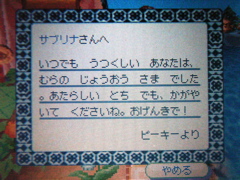 サブリナさんへ
いつでも うつくしい あなたは、
むらの じょうおう さま でした
。あたらしい とち でも、かがや
いて くださいね。おげんきで!
ピーキーより
やめる